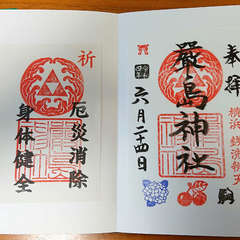 奉拝
横浜
嚴島神社
六月二十四日
祈
厄災消除
身体健全